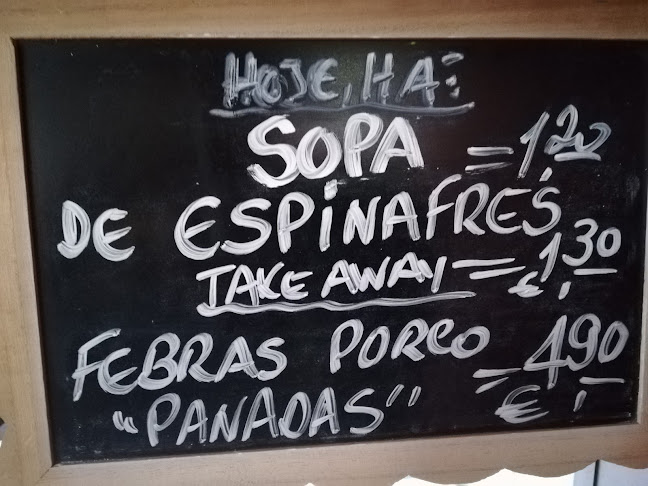 HOJE, HA:
SOPA = 1,20
DE ESPINAFRES
TAKE AWAY = 1,30 €
FEBRAS PORCO = 4,90 €
"PANADAS"